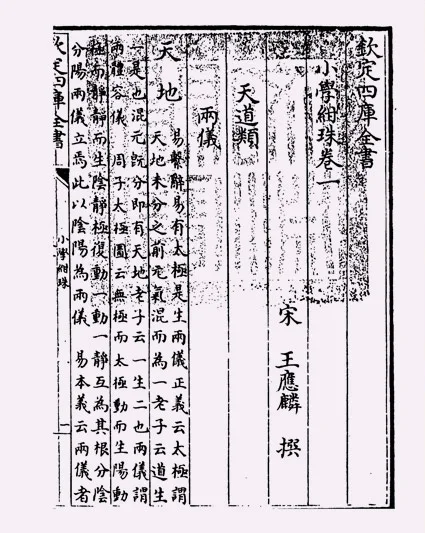 欽定四庫全書
小學紺珠卷一
宋 王應麟 撰
天道類
兩儀
天地
易繫辭易有太極是生兩儀正義云太極謂
天地未分之前元氣混而為一老子云道生
一是也混元既分即有天地老子云一生二也兩儀謂
兩體容儀 周子太極圖云無極而太極動而生陽動
極而靜靜而生陰靜極復動一動一靜互為其根分陰
分陽兩儀立焉此以陰陽為兩儀 易本義云兩儀者
欽定四庫全書
小學紺珠
一